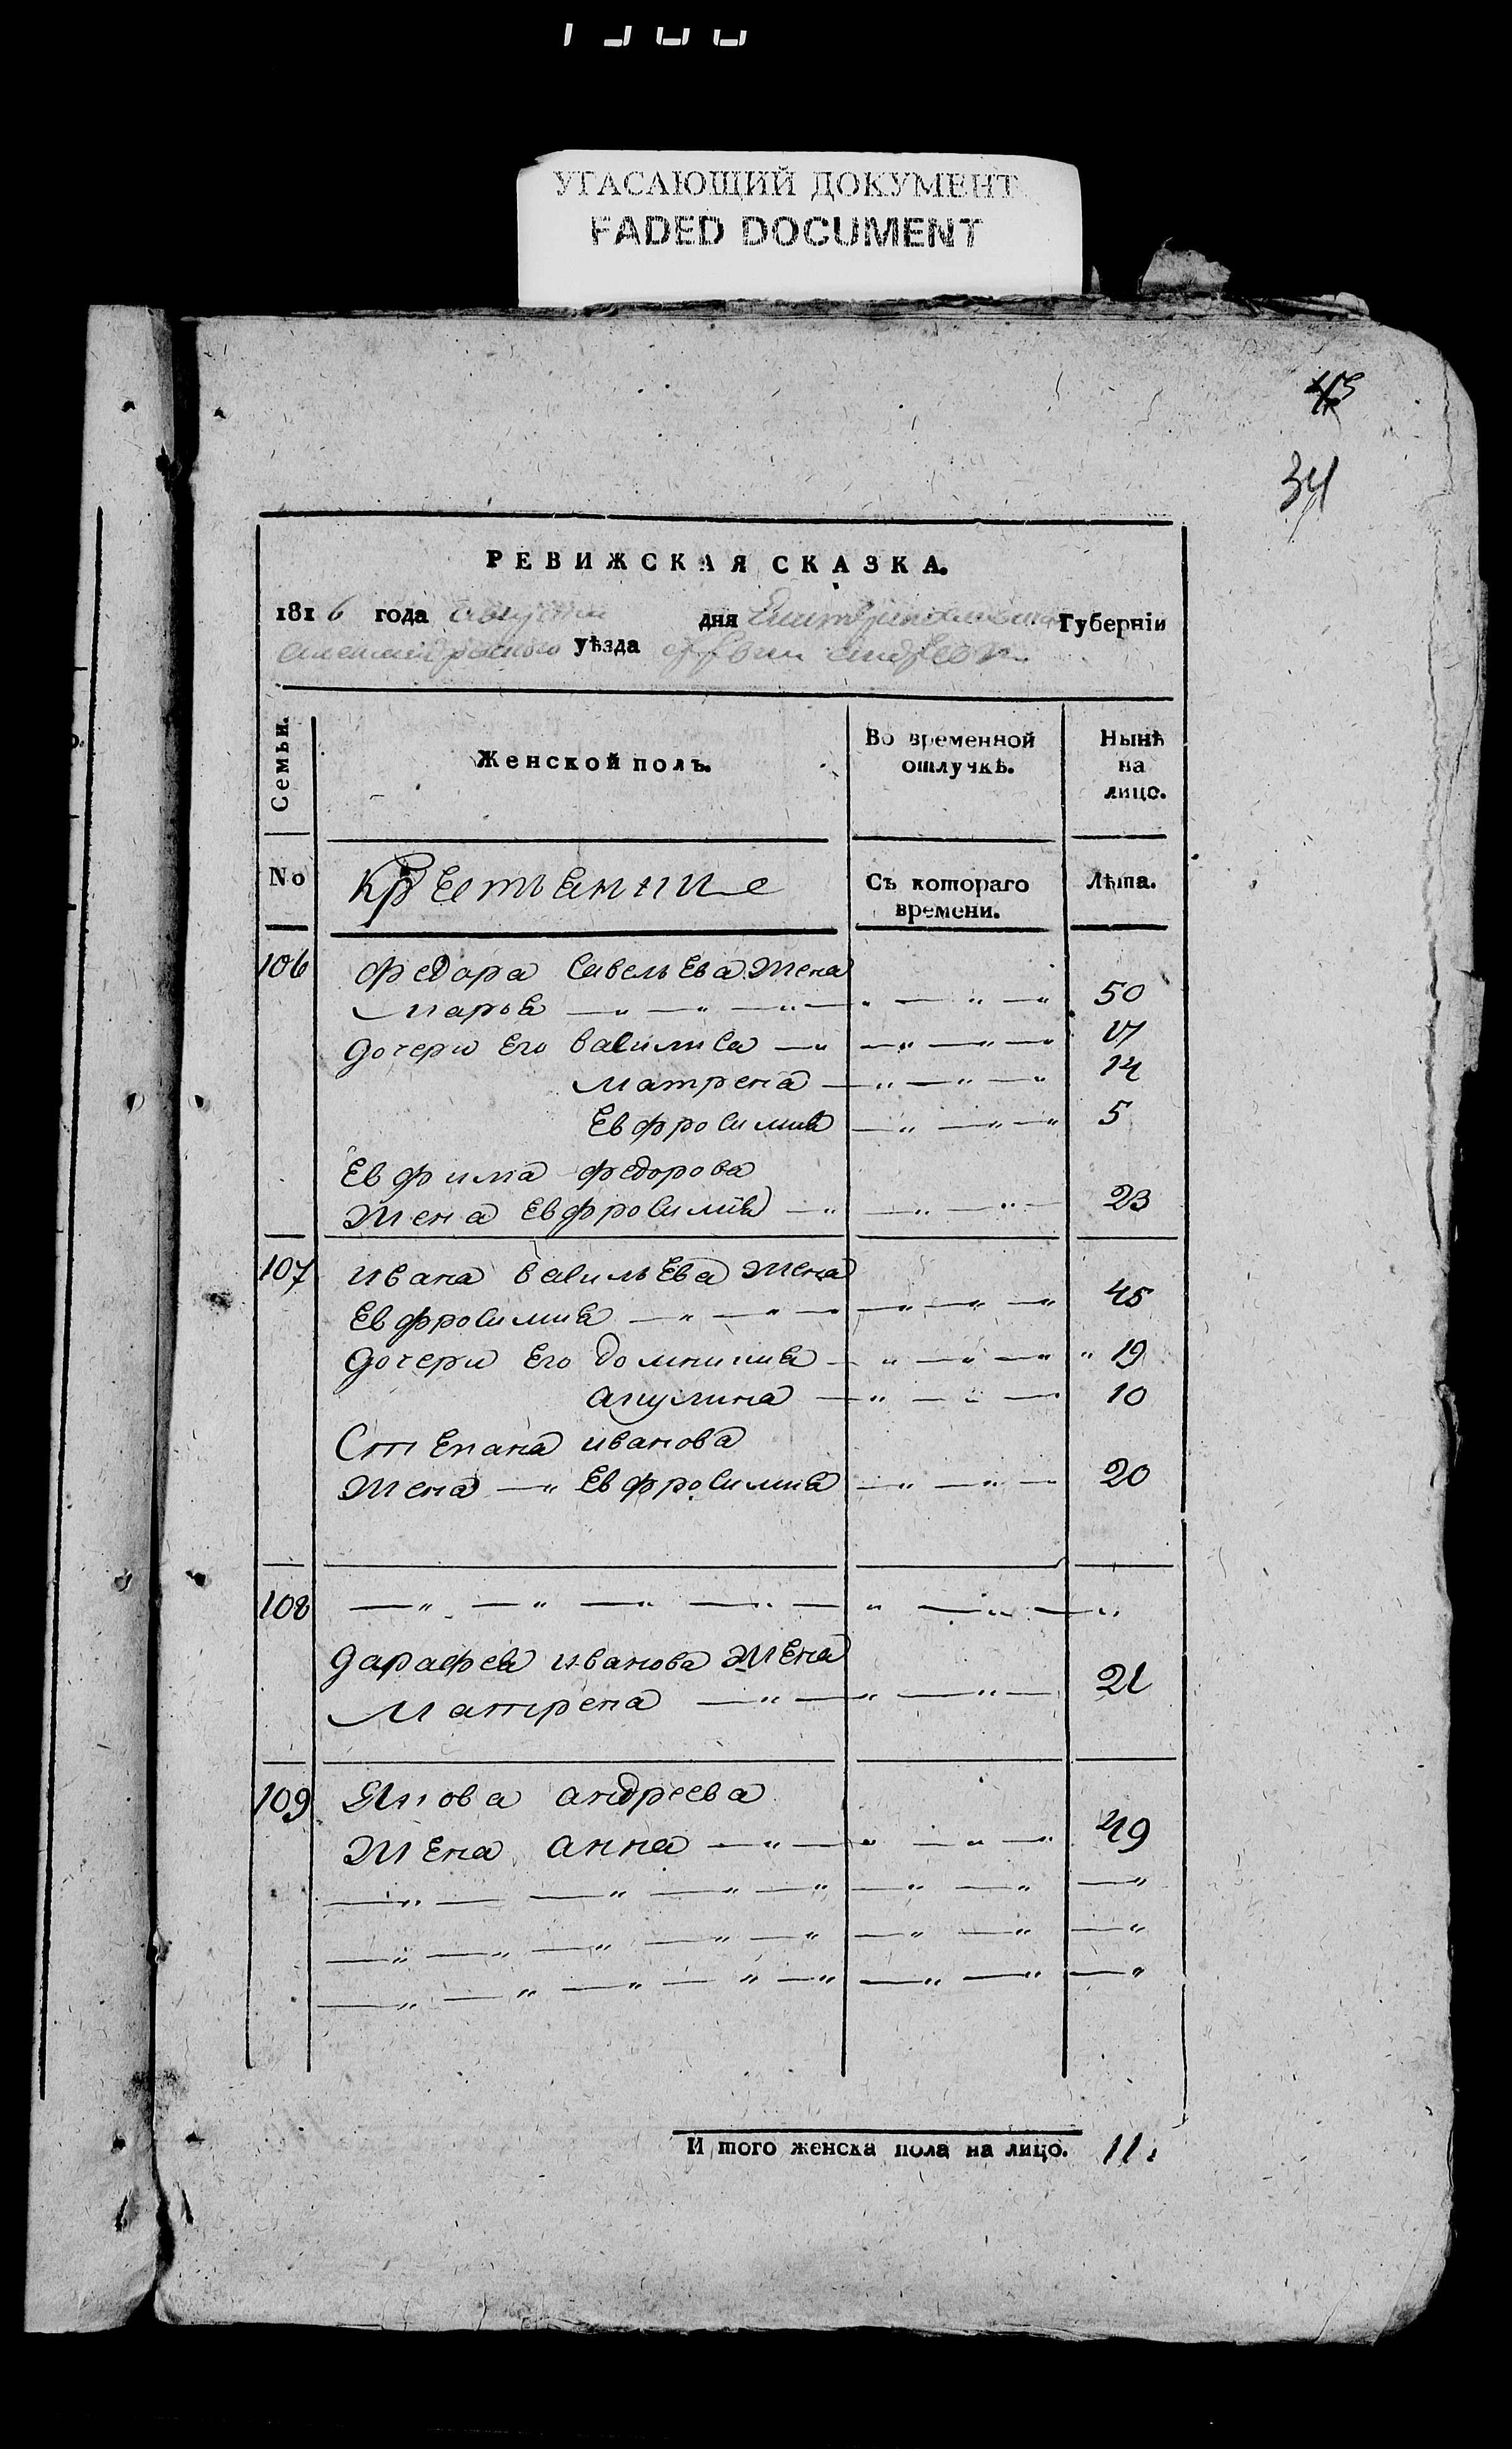 УГАСАЮЩИЙ ДОКУМЕНТ
FADED DOCUMENT
34
РЕВИЖСКАЯ СКАЗКА.
1816 года августа дня Екатеринославской Губерніи
александрскаго уѣзда
Семьи.
Женской полъ.
Во временной отлучкѣ.
Нынѣ на лицо.
No
Крестьянние
Съ котораго времени.
Лѣта.
106 Федора Савельева жена
марья 50
дочери Его василиса 17
матрена 14
Евфросиния 5
Евфима федорова
жена Евфросиния 23
107 ивана васильева жена
Евфросиния 45
дочери Его домникия 19
акулина 10
Степана иванова
жена Евфросиния 20
108
дарафея иванова жена
Матрена 21
109 Якова андреева
жена анна 49
И того женска пола на лицо. 11.